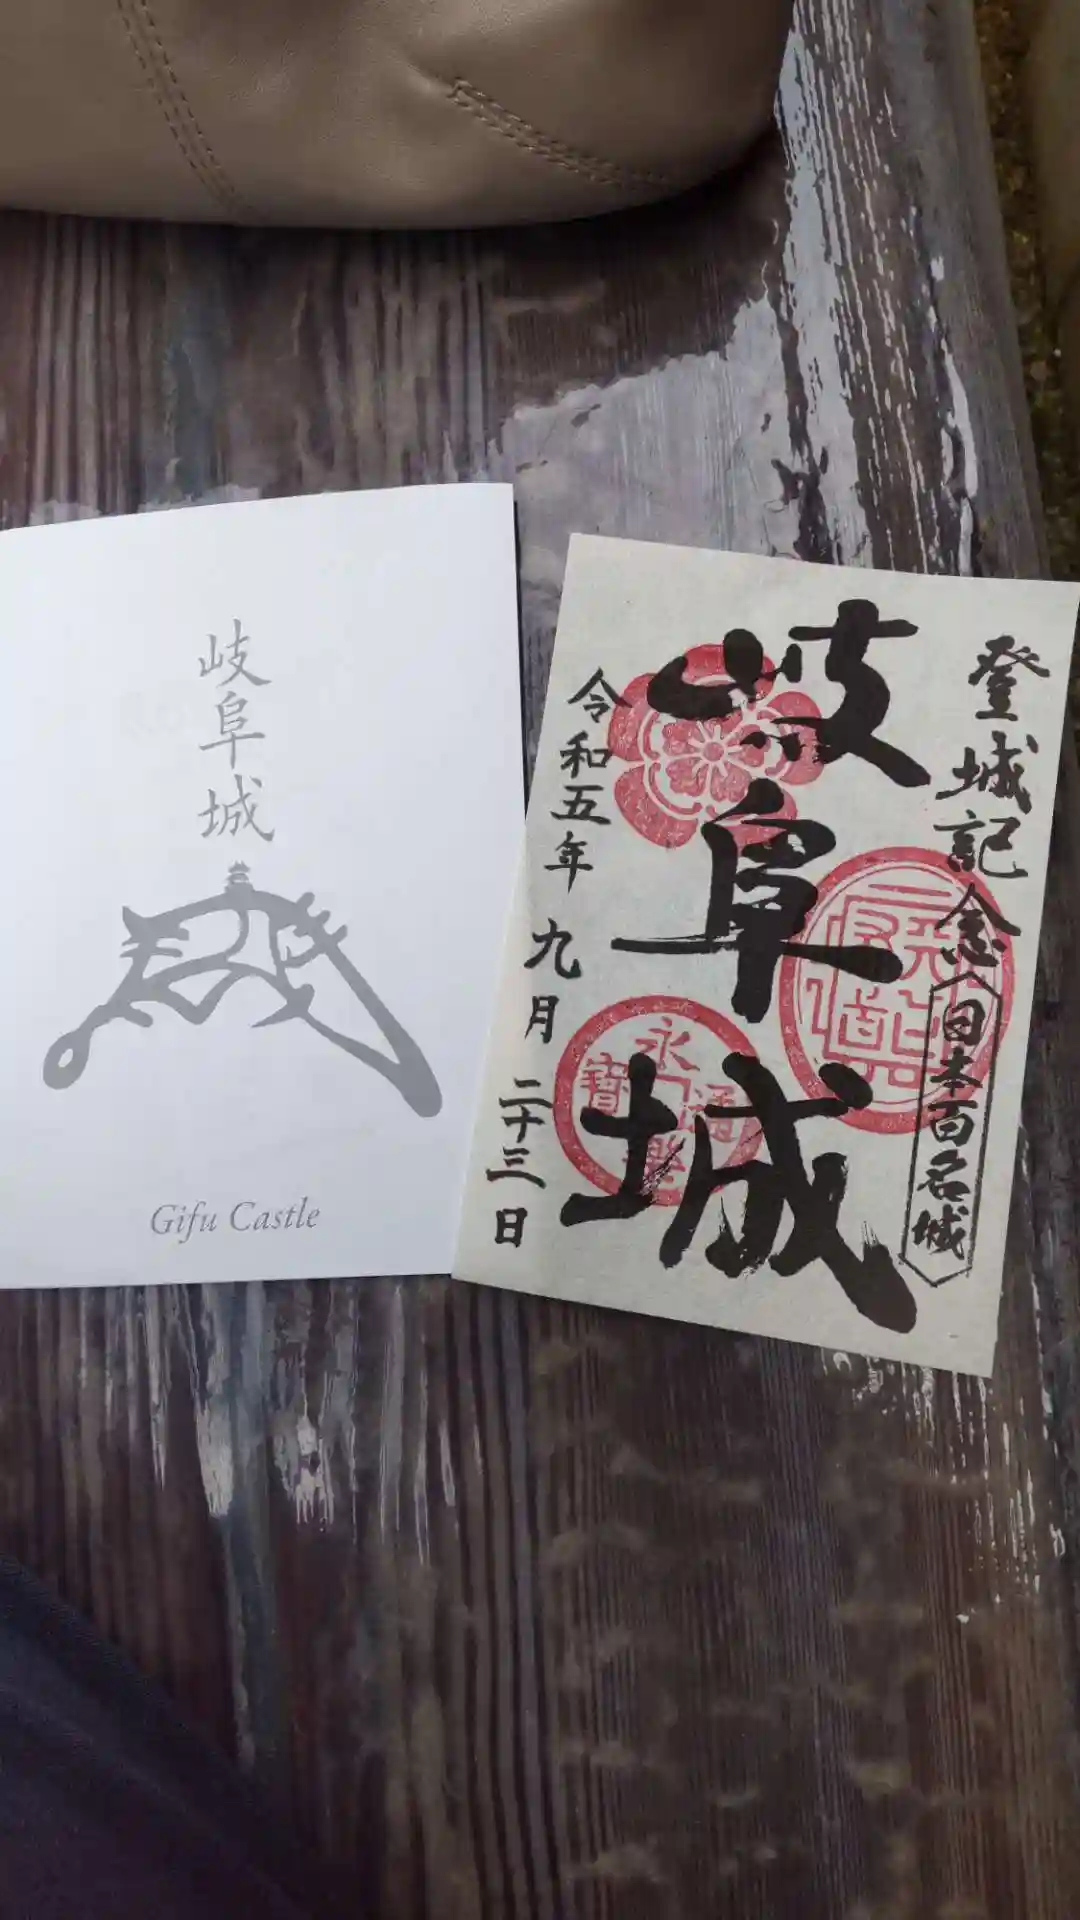 岐阜城
Gifu Castle
登城記念
日本百名城
岐阜城
永樂通寶
令和五年 九月 二十三日